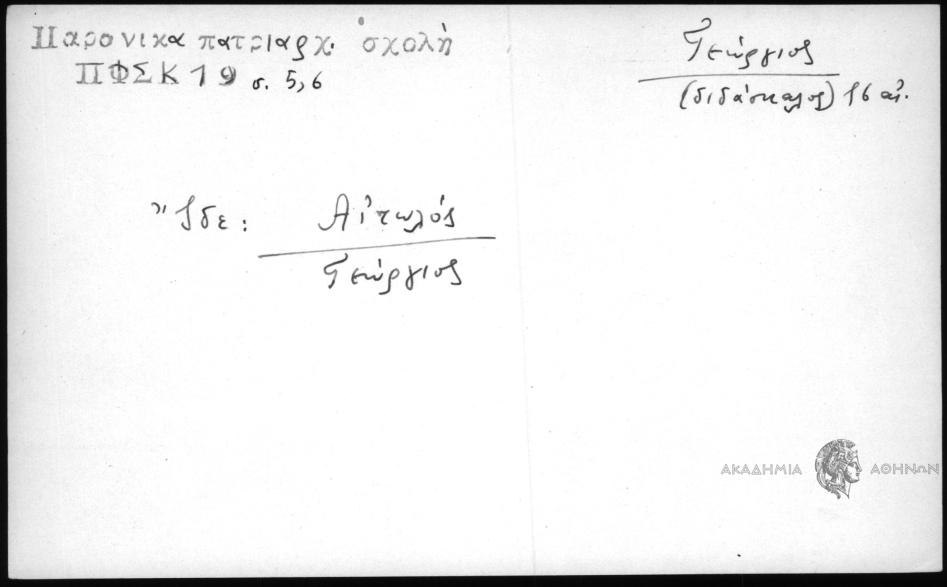 Παρονικα πατριαρχ. σχολή
ΠΦΣΚ 19 σ. 5, 6
Γεώργιος
(διδάσκαλος) 16 αἰ.
Ἴδε: Αἰτωλός
Γεώργιος
ΑΚΑΔΗΜΙΑ ΑΘΗΝΩΝ